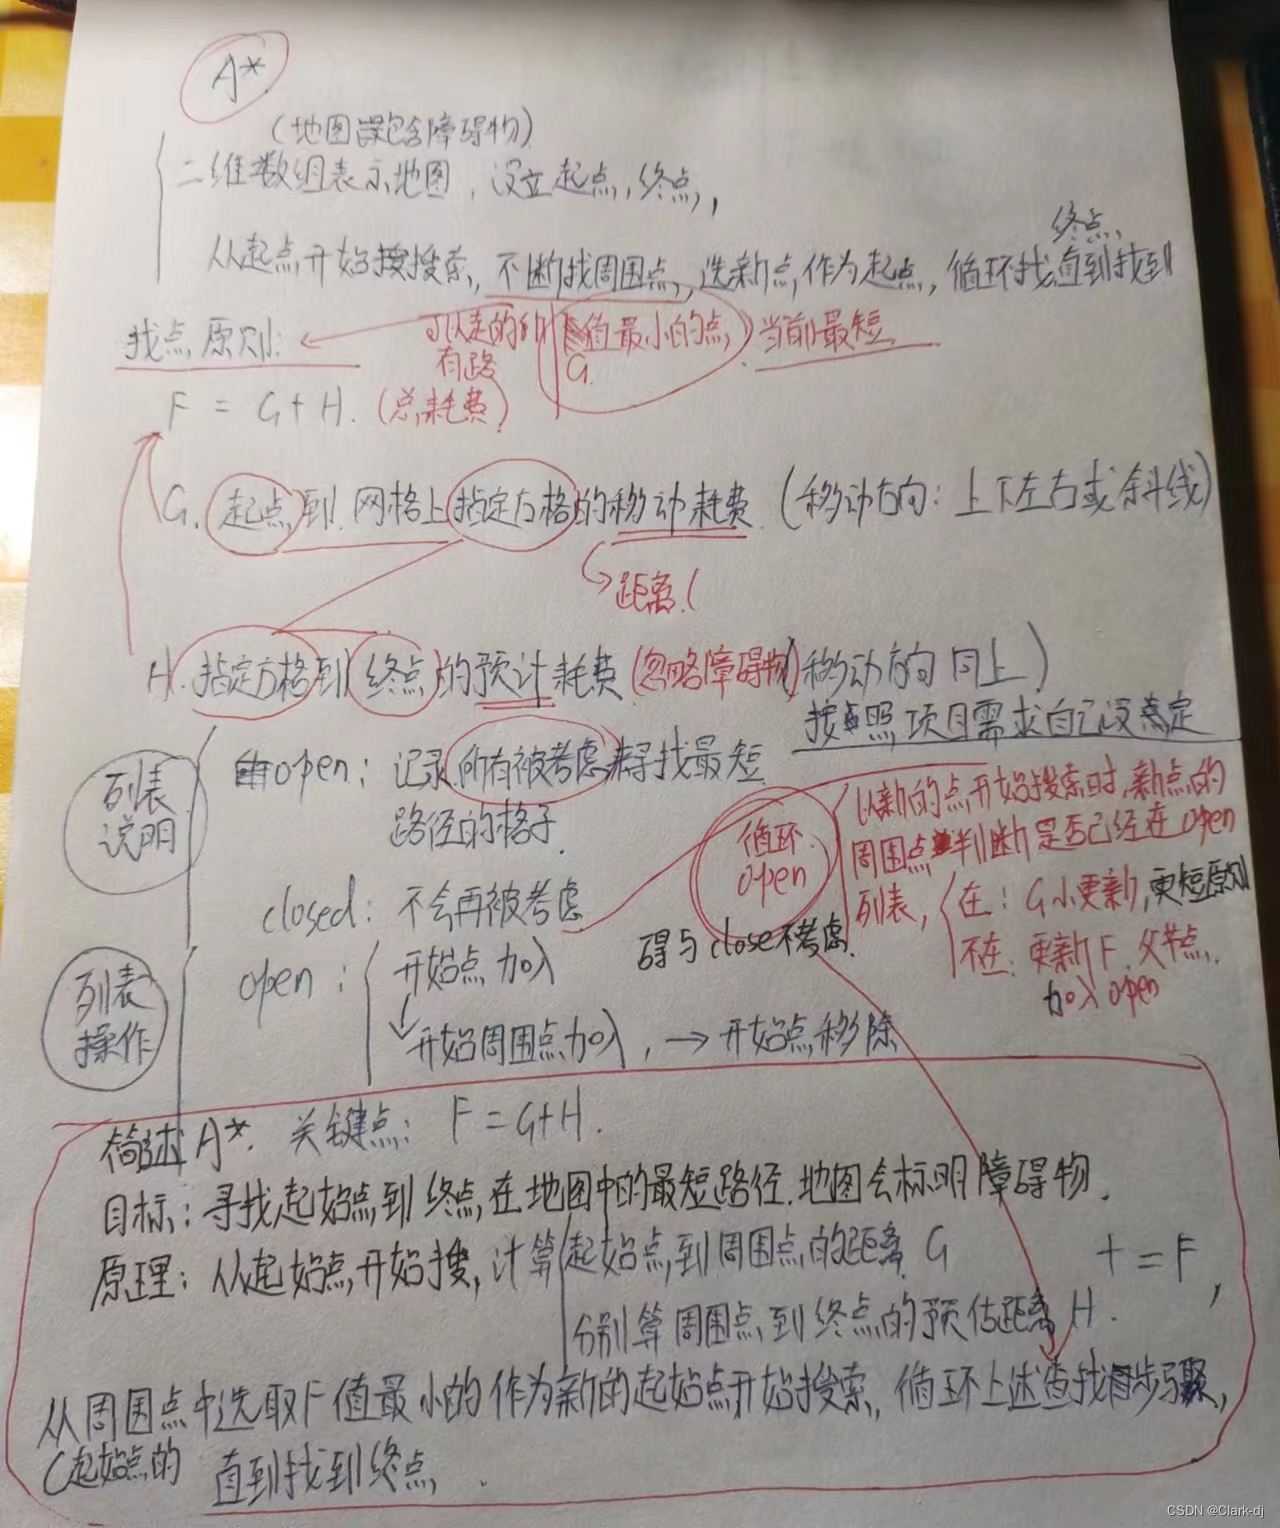 A*
(地图包含障碍物)
二维数组表示地图,设立起点,终点,
终点,
从起点开始搜索,不断找周围点,选新点,作为起点,循环找,直到找到
找点原则: 可以走的和 值最小的点 当前最短
有路 G.
F = G+H. (总耗费)
G. 起点到网格上指定方格的移动耗费 (移动方向:上下左右或斜线)
距离(
H. 指定方格到(终点)的预计耗费(忽略障碍物)移动方向同上)
按照项目需求自己设定
列表
说明
open: 记录所有被考虑来寻找最短
路径的格子.
closed: 不会再被考虑
循环
open
以新的点开始搜索时,新点的
周围点判断是否已经在open
列表,
在: G小更新,更短原则
不在: 更新F.父节点.
加入open
碍与close不考虑.
列表
操作
open: 开始点加入
开始周围点加入, → 开始点移除
简述A*. 关键点: F=G+H.
目标: 寻找起始点到终点,在地图中的最短路径.地图会标明障碍物.
原理: 从起始点,开始搜,计算起始点,到周围点的距离 G + = F,
分别算周围点到终点的预估距离 H.
从周围点中选取F值最小的作为新的起始点开始搜索,循环上述查找步骤,
(起始点的 直到找到终点.
CSDN @Clark-dj